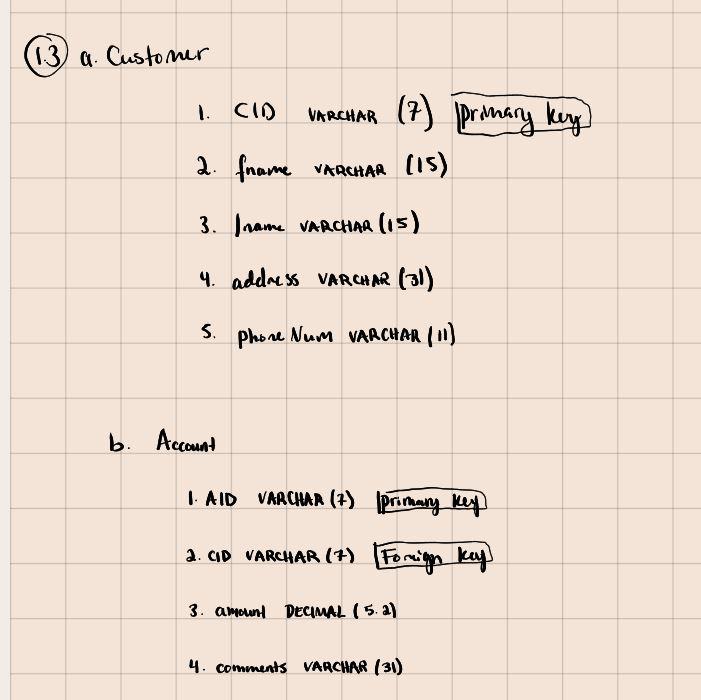 1.3 a. Customer
1. CID VARCHAR (7) primary key
2. fname VARCHAR (15)
3. lname VARCHAR (15)
4. address VARCHAR (31)
5. phoneNum VARCHAR (11)
b. Account
1. AID VARCHAR (7) primary key
2. CID VARCHAR (7) Foreign key
3. amount DECIMAL (5.2)
4. comments VARCHAR (31)